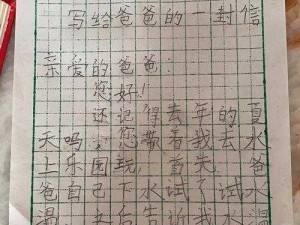 写给爸爸的一封信
亲爱的爸爸:
您好!
还记得去年的夏
天吗?您带着我去水
上乐园玩,首先爸
爸自己下水试了试水
温,然后告诉我水温